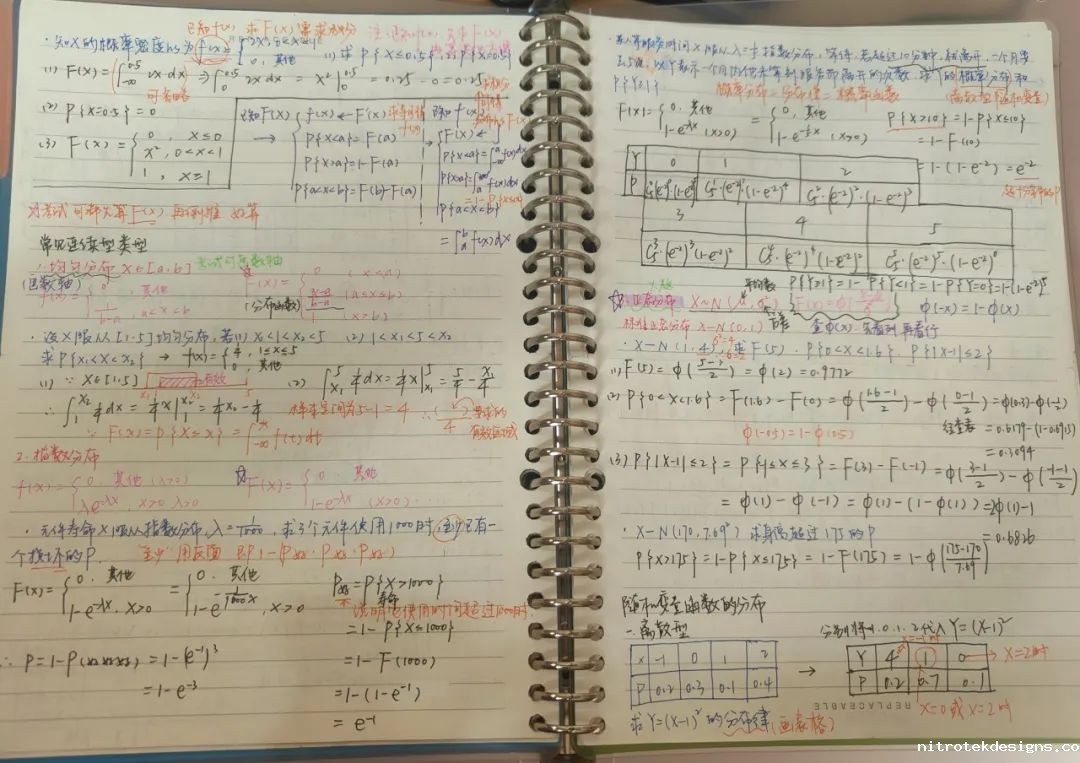 已知f(x),求F(x)需求积分
·知X的概率密度为f(x)={2x, 0<x<1
0, 其他
(1)求P{X≤0.5}, P{X=0.5}
(1) F(x)=∫_{-∞}^{0.5} 2x·dx ⇒ ∫_0^{0.5} 2x dx = x²|_0^{0.5} = 0.25-0=0.25
可省略
(2) P{X=0.5}=0
(3) F(x)={0, x≤0
x², 0<x<1
1, x≥1
已知F(x) → {f(x)←F'(x) 求导可得f(x)
P{X<a}=F(a)
P{X>a}=1-F(a)
P{a<X<b}=F(b)-F(a)
已知f(x)
F(x)
P{X<a}=∫_{-∞}^a f(x)dx
P{X>a}=∫_a^{+∞} f(x)dx
=1-P{X≤a}
P{a<X<b}
=∫_a^b f(x)dx
常见连续型类型
1.均匀分布 X∈[a,b] 考试可画数轴
(画数轴)
f(x)={0, 其他
1/(b-a), a<x<b
F(x)={0 (x<a)
(x-a)/(b-a) (a≤x≤b)
1 (x>b)
(分布函数)
·设X服从[1,5]均匀分布,若(1) x₁<1<x₂<5 (2) 1<x₁<5<x₂
求P{x₁<X<x₂} → f(x)={1/4, 1≤x≤5
0, 其他
(1) ∵ X∈[1,5] 有效
∴ ∫_1^{x₂} 1/4 dx = 1/4 x|_1^{x₂} = 1/4 x₂ - 1/4
(2) ∫_{x₁}^5 1/4 dx = 1/4 x|_{x₁}^5 = 5/4 - x₁/4
样本空间为5-1=4
∵ F(x)=P{X≤x}=∫_{-∞}^x f(t)dt
2.指数分布
f(x)={0, 其他
λe^{-λx}, x>0 λ>0
☆F(x)={0, 其他
1-e^{-λx} (x>0)
·元件寿命X服从指数分布,λ=1/1000,求3个元件使用1000时,至少已有一
个损坏的P. "至少"用反面 即1-P好·P好·P好
F(x)={0, 其他
1-e^{-λx}, x>0
={0, 其他
1-e^{-1/1000 x}, x>0
P好=P{X>1000}
寿命
说明它使用时间超过1000时
=1-P{X≤1000}
∴ P=1-P(好好好)=1-(e^{-1})³
=1-F(1000)
=1-e^{-3}
=1-(1-e^{-1})
=e^{-1}
P{Y≥1}
概率分布=分布律=概率函数
离散型(随机变量)
F(x)={0, 其他
1-e^{-λx} (x>0)
={0, 其他
1-e^{-1/5 x} (x>0)
P{X>10}=1-P{X≤10}
=1-F(10)
=1-(1-e^{-2})=e^{-2}
Y 0 1 2
P C₅⁰·(e^{-2})⁰(1-e^{-2})⁵ C₅¹·(e^{-2})¹(1-e^{-2})⁴ C₅²·(e^{-2})²·(1-e^{-2})³
3 4 5
C₅³·(e^{-2})³(1-e^{-2})² C₅⁴·(e^{-2})⁴(1-e^{-2})¹ C₅⁵·(e^{-2})⁵·(1-e^{-2})⁰
P{Y≥1}=1-P{Y<1}=1-P{Y=0}=1-(1-e^{-2})⁵
☆正态分布 X~N(μ,σ²) F(x)=Φ((x-μ)/σ) Φ(-x)=1-Φ(x)
标准正态分布 X~N(0,1) 查Φ(x) 先看列再看行
·X~N(1,4),求F(5), P{0<X<1.6}, P{|X-1|≤2}
(1) F(5)=Φ((5-1)/2)=Φ(2)=0.9772
(2) P{0<X<1.6}=F(1.6)-F(0)=Φ((1.6-1)/2)-Φ((0-1)/2)=Φ(0.3)-Φ(-1/2)
Φ(-0.5)=1-Φ(0.5) 经查表=0.6179-(1-0.6915)
=0.3094
(3) P{|X-1|≤2}=P{-1≤X≤3}=F(3)-F(-1)=Φ((3-1)/2)-Φ((-1-1)/2)
=Φ(1)-Φ(-1)=Φ(1)-(1-Φ(1))=2Φ(1)-1
=0.6826
·X~N(170,7.69²) 求身高超过175的P
P{X>175}=1-P{X≤175}=1-F(175)=1-Φ((175-170)/7.69)
随机变量函数的分布
一.离散型
分别将-1.0.1.2代入Y=(X-1)²
X -1 0 1 2
P 0.2 0.3 0.1 0.4
→
Y 4 1 0
P 0.2 0.7 0.1
X=0或X=2时
求Y=(X-1)²的分布律(画表格)
REPLACEABLE
nitrotekdesigns.co